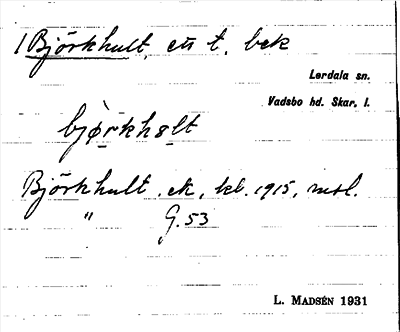 1 Björkhult, ett t. bek
Lerdala sn.
Vadsbo hd. Skar. l.
bjørkhɵlt
Björkhult. ek, kb. 1915, mtl.
" G. 53
L. MADSÉN 1931